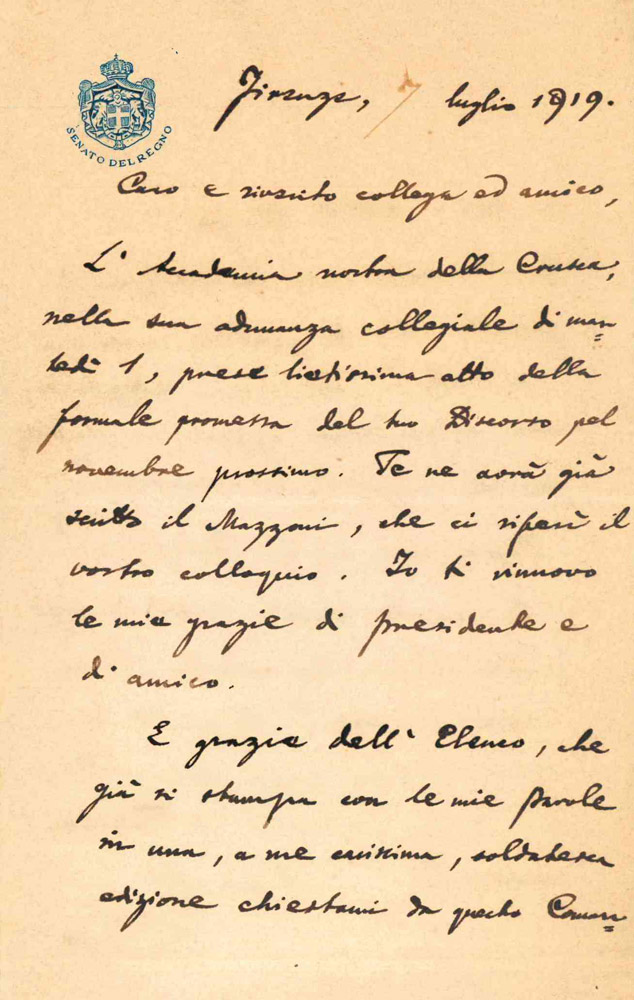 SENATO DEL REGNO
Firenze, 7 luglio 1919.
Caro e riverito collega ed amico,
L' Accademia nostra della Crusca,
nella sua adunanza collegiale di mar=
tedì 1, prese lietissima atto della
formale promessa del tuo Discorso pel
novembre prossimo. Te ne avrà già
scritto il Mazzoni, che ci riferì il
vostro colloquio. Io ti rinnovo
le mie grazie di presidente e
di amico.
E grazie dell' Elenco, che
già si stampa con le mie parole
in una, a me carissima, soldatesca
edizione chiestami da questo Coman=